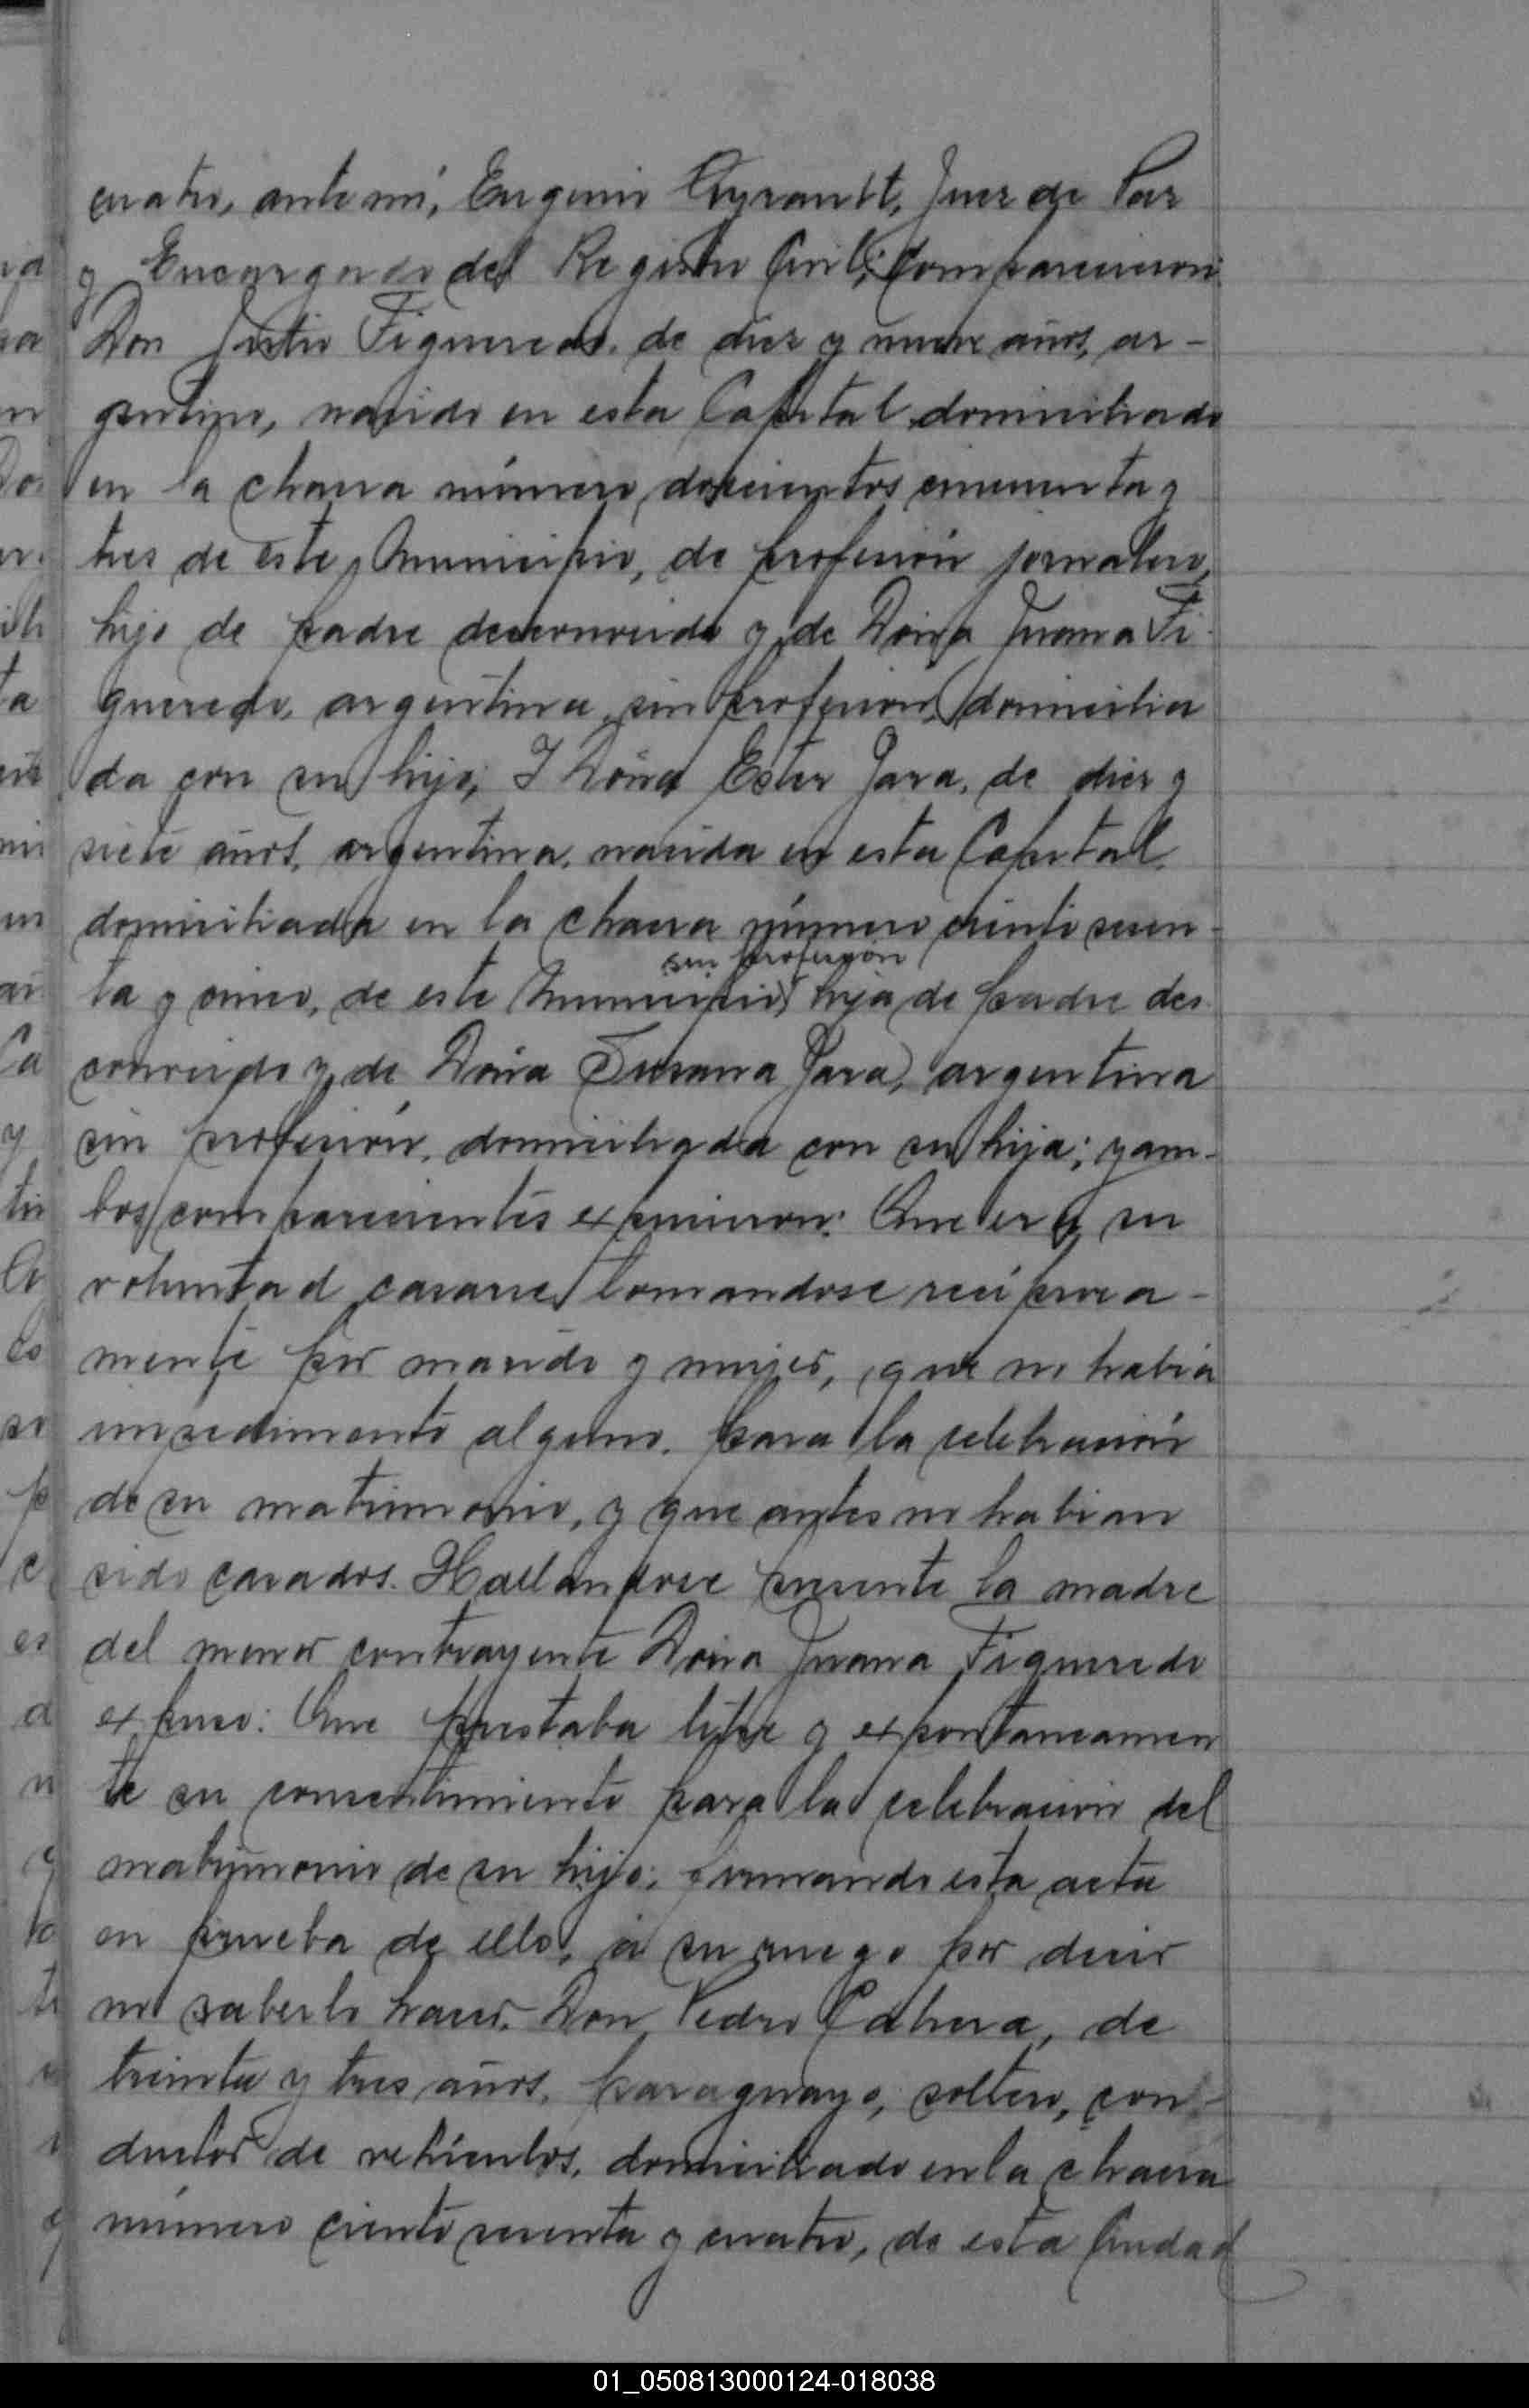 cuatro, ante mí, Eugenio Ayrault, Juez de Paz
y Encargado del Registro Civil; Comparecieron:
Don Justo Figueredo, de diez y nueve años, ar-
gentino, nacido en esta Capital domiciliado
en la chacra número doscientos cincuenta y
tres de este Municipio, de profesión jornalero,
hijo de padre desconocido y de Doña Juana Fi-
gueredo, argentina, sin profesión, domicilia
da con su hijo; I Doña Ester Jara, de diez y
siete años, argentina, nacida en esta Capital,
domiciliada en la chacra número ciento sesen-
sin profesión
ta y cinco, de este Municipio, hija de padre des-
conocido y de Doña Susana Jara, argentina
sin profesión, domiciliada con su hija; y am-
bos comparecientes expusieron: Que era su
voluntad casarse tomandose recíproca-
mente por marido y mujer, que no había
impedimento alguno, para la celebración
de su matrimonio, y que antes no habian
sido casados. Hallandose presente la madre
del menor contrayente Doña Juana Figueredo
expuso: Que prestaba libre y expontaneamen
te su consentimiento para la celebración del
matrimonio de su hijo; firmando esta acta
en prueba de ello, á su ruego por decir
no saberlo hacer, Don Pedro Cabrera, de
treinta y tres años, paraguayo, soltero, con-
ductor de vehículos, domiciliado en la chacra
número ciento sesenta y cuatro, de esta Ciudad
01_050813000124-018038